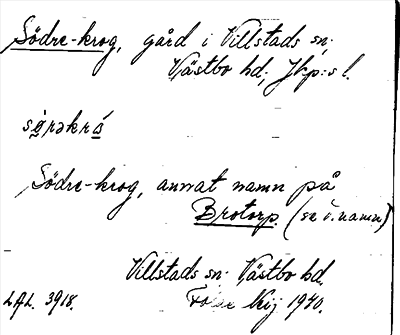 Södre-krog, gård i Villstads sn.
Västbo hd, Jkp:s l.
Södre-krog, annat namn på
Brotorp. (se d. namn)
Villstads sn. Västbo hd.
LAL. 3918. 1940.